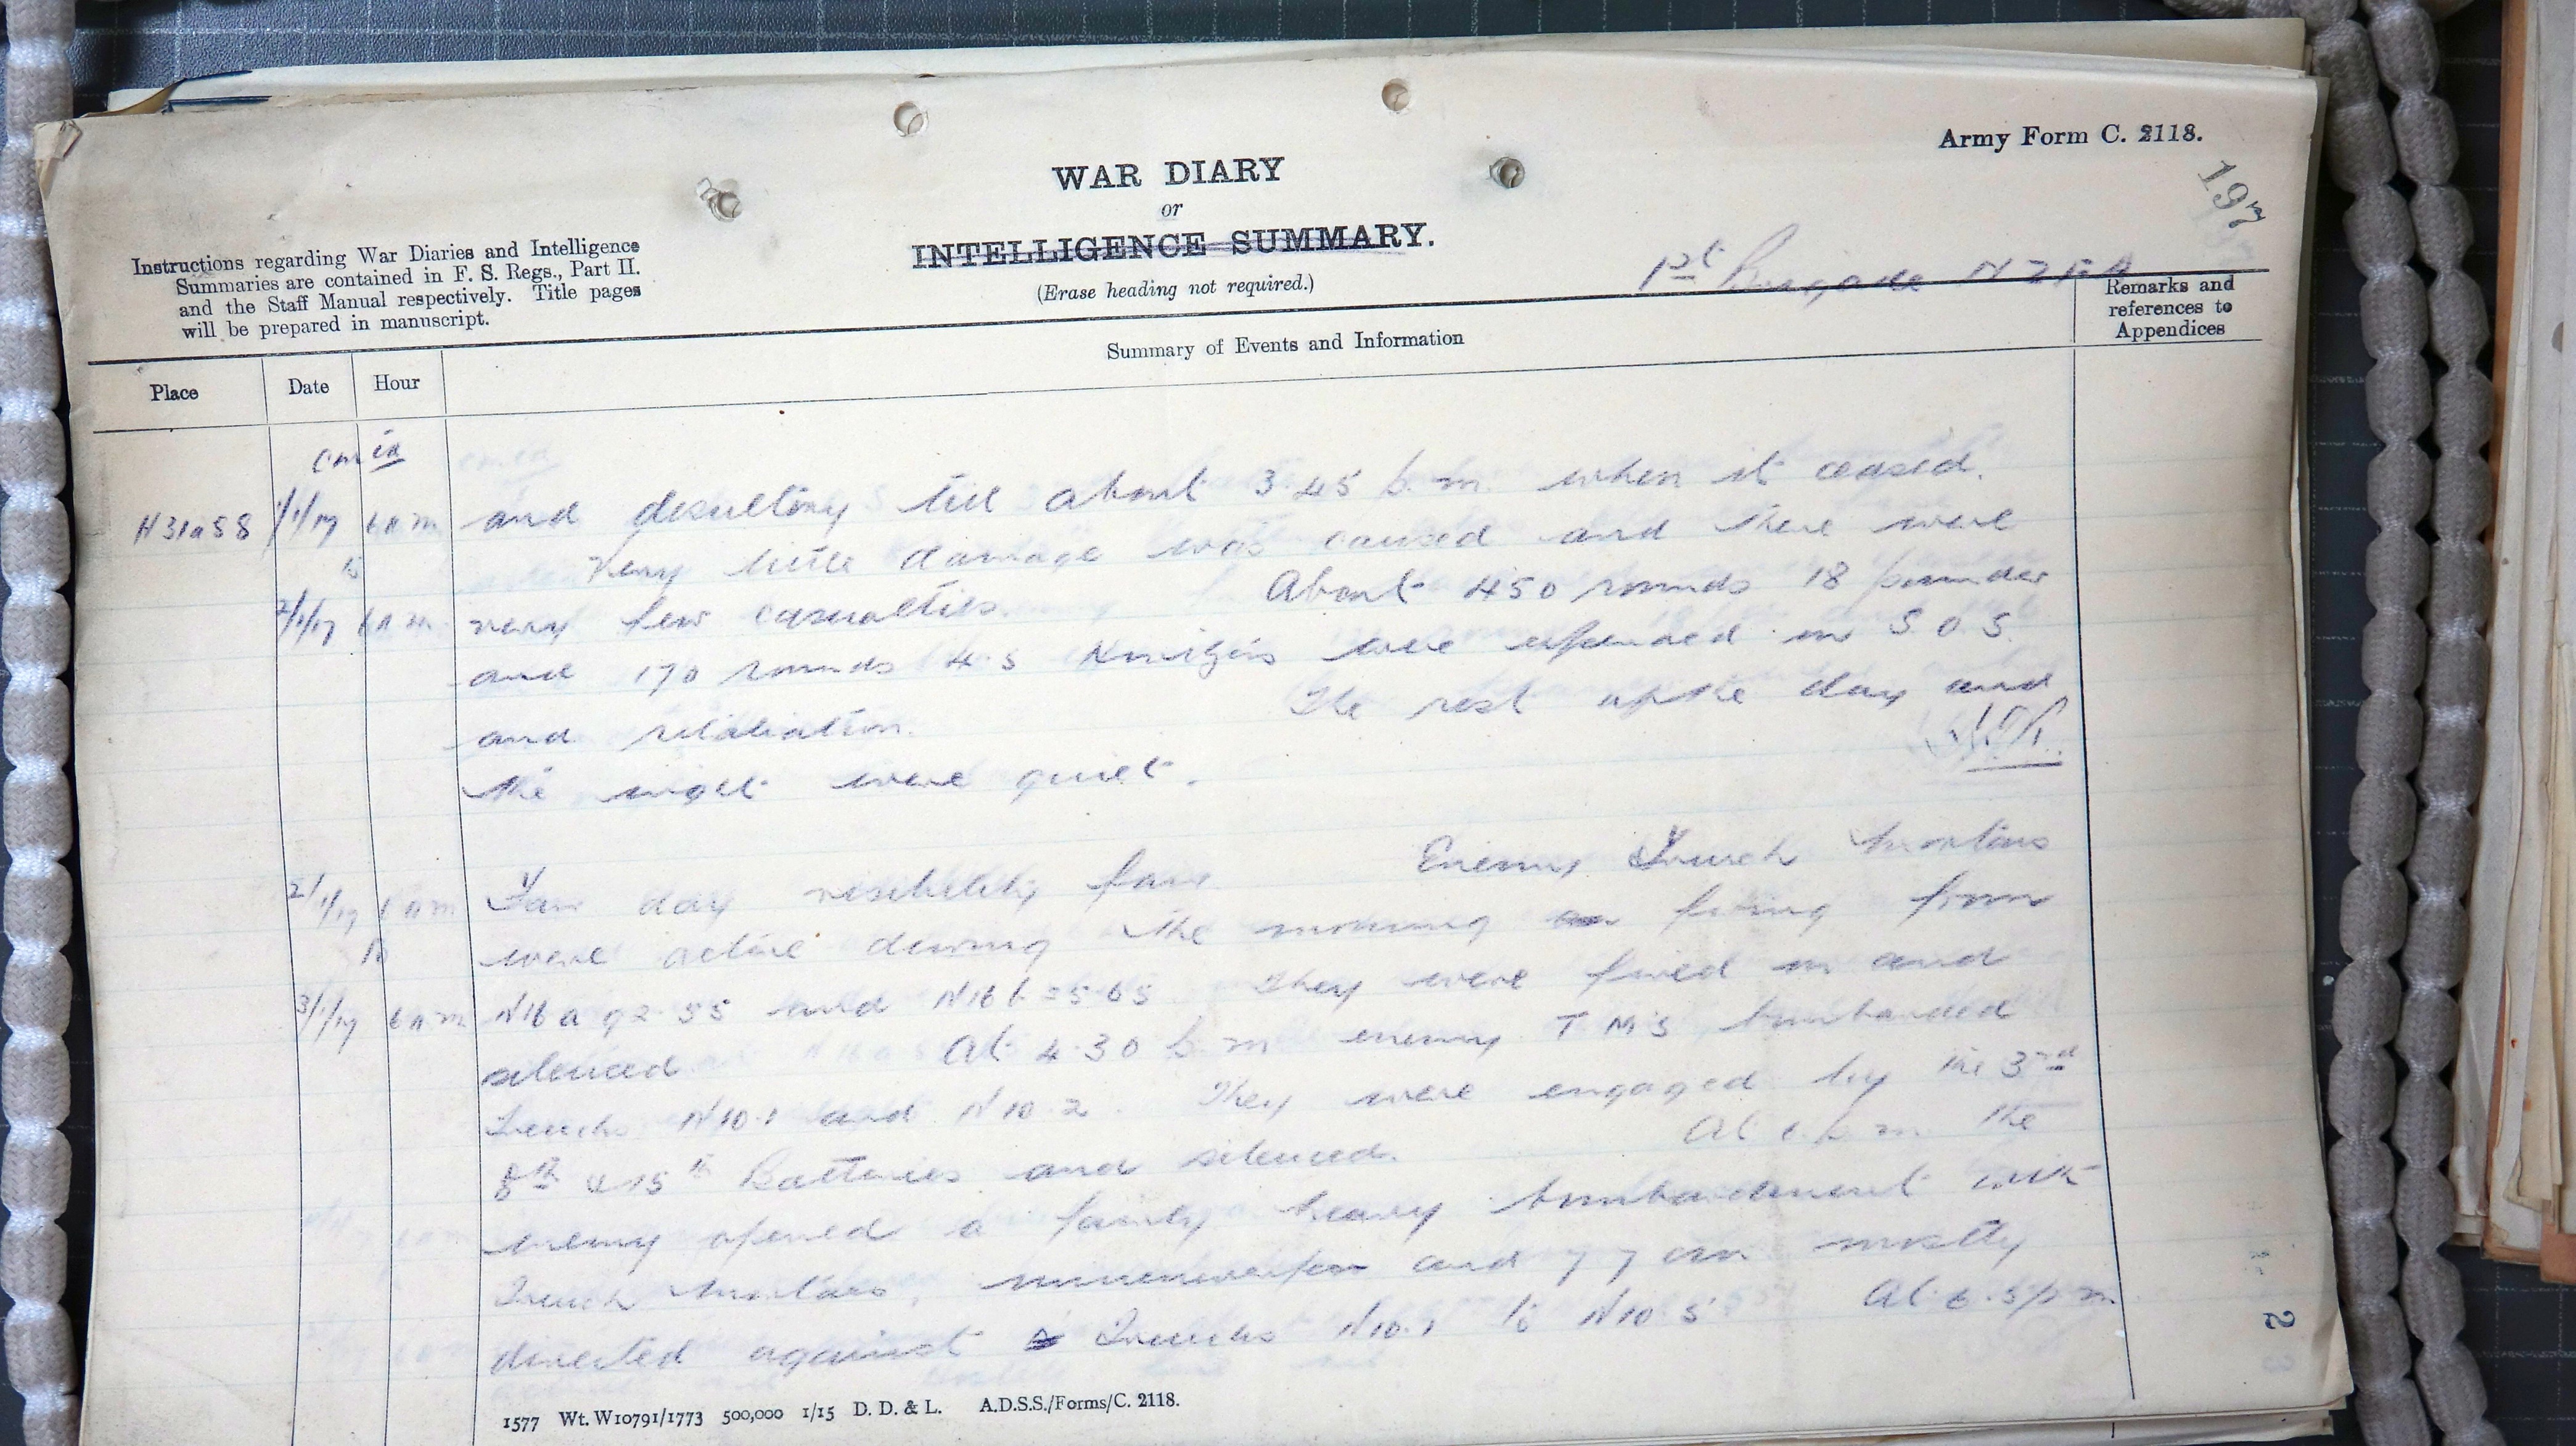 Army Form C. 2118.
197
WAR DIARY
or
INTELLIGENCE SUMMARY.
(Erase heading not required.)
Instructions regarding War Diaries and Intelligence
Summaries are contained in F. S. Regs., Part II.
and the Staff Manual respectively. Title pages
will be prepared in manuscript.
1st Brigade N Z F A
Remarks and
references to
Appendices
Summary of Events and Information
Place Date Hour
N31a58 1/1/17 6 a m and desultory till about 3.45 p.m. when it ceased.
to Very little damage was caused and there were
2/1/17 6 a m very few casualties. About 450 rounds 18 pounder
and 170 rounds 4.5 Howitzers were expended in S.O.S.
and retaliation. The rest of the day and
the night were quiet.
2/1/17 6 a m Fair day visibility fair Enemy Trench Mortars
to were active during the morning firing from
3/1/17 6 a m N16 a 92.55 and N16 b They were fired on and
silenced At 4.30 p m enemy T M's bombarded
Trenches N10.1 and N10.2. They were engaged by the 3rd
8th & 15th Batteries and silenced. At p.m. the
enemy opened a fairly heavy bombardment with
Trench Mortars, minenwerfer and 77 cm mostly
directed against Trenches N10.1 to N10.5. At 6.5 p.m.
1577 Wt. W10791/1773 500,000 1/15 D. D. & L. A.D.S.S./Forms/C. 2118.
2